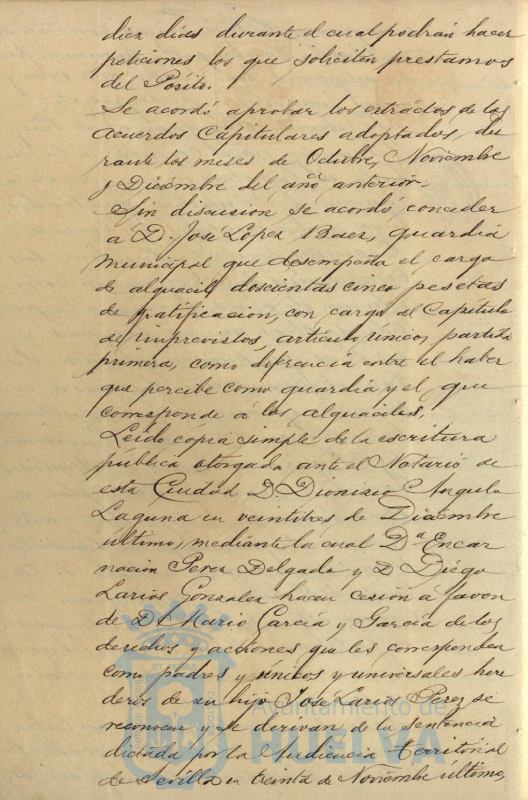 diez dias durante el cual podrán hacer
peticiones los que soliciten prestamos
del Pósito.
Se acordó aprobar los extractos de los
acuerdos Capitulares adoptados du
rante los meses de Octubre, Noviembre
y Diciembre del año anterior.
Sin discusión se acordó conceder
a D. José Lopez Baez, guardia
municipal que desempeña el cargo
de alguacil doscientas cinco pesetas
de gratificacion, con cargo al Capitulo
de imprevistos, articulo único, partida
primera, como diferencia entre el haber
que percibe como guardia y el que
corresponde a los alguaciles.
Leido copia simple de la escritura
pública otorgada ante el Notario de
esta Ciudad D. Dionisio Angulo
Laguna en veintitres de Diciembre
ultimo, mediante la cual Dª Encar
nacion Perez Delgado y D. Diego
Larios Gonzalez hacen cesión a favor
de D. Mario García y García de los
derechos y acciones que les corresponden
como padres y únicos y universales here
deros de su hijo José Larios Perez se
reconocen y se derivan de la sentencia
dictada por la Audiencia Territorial
de Sevilla en treinta de Noviembre último,
Ayuntamiento de
HUELVA